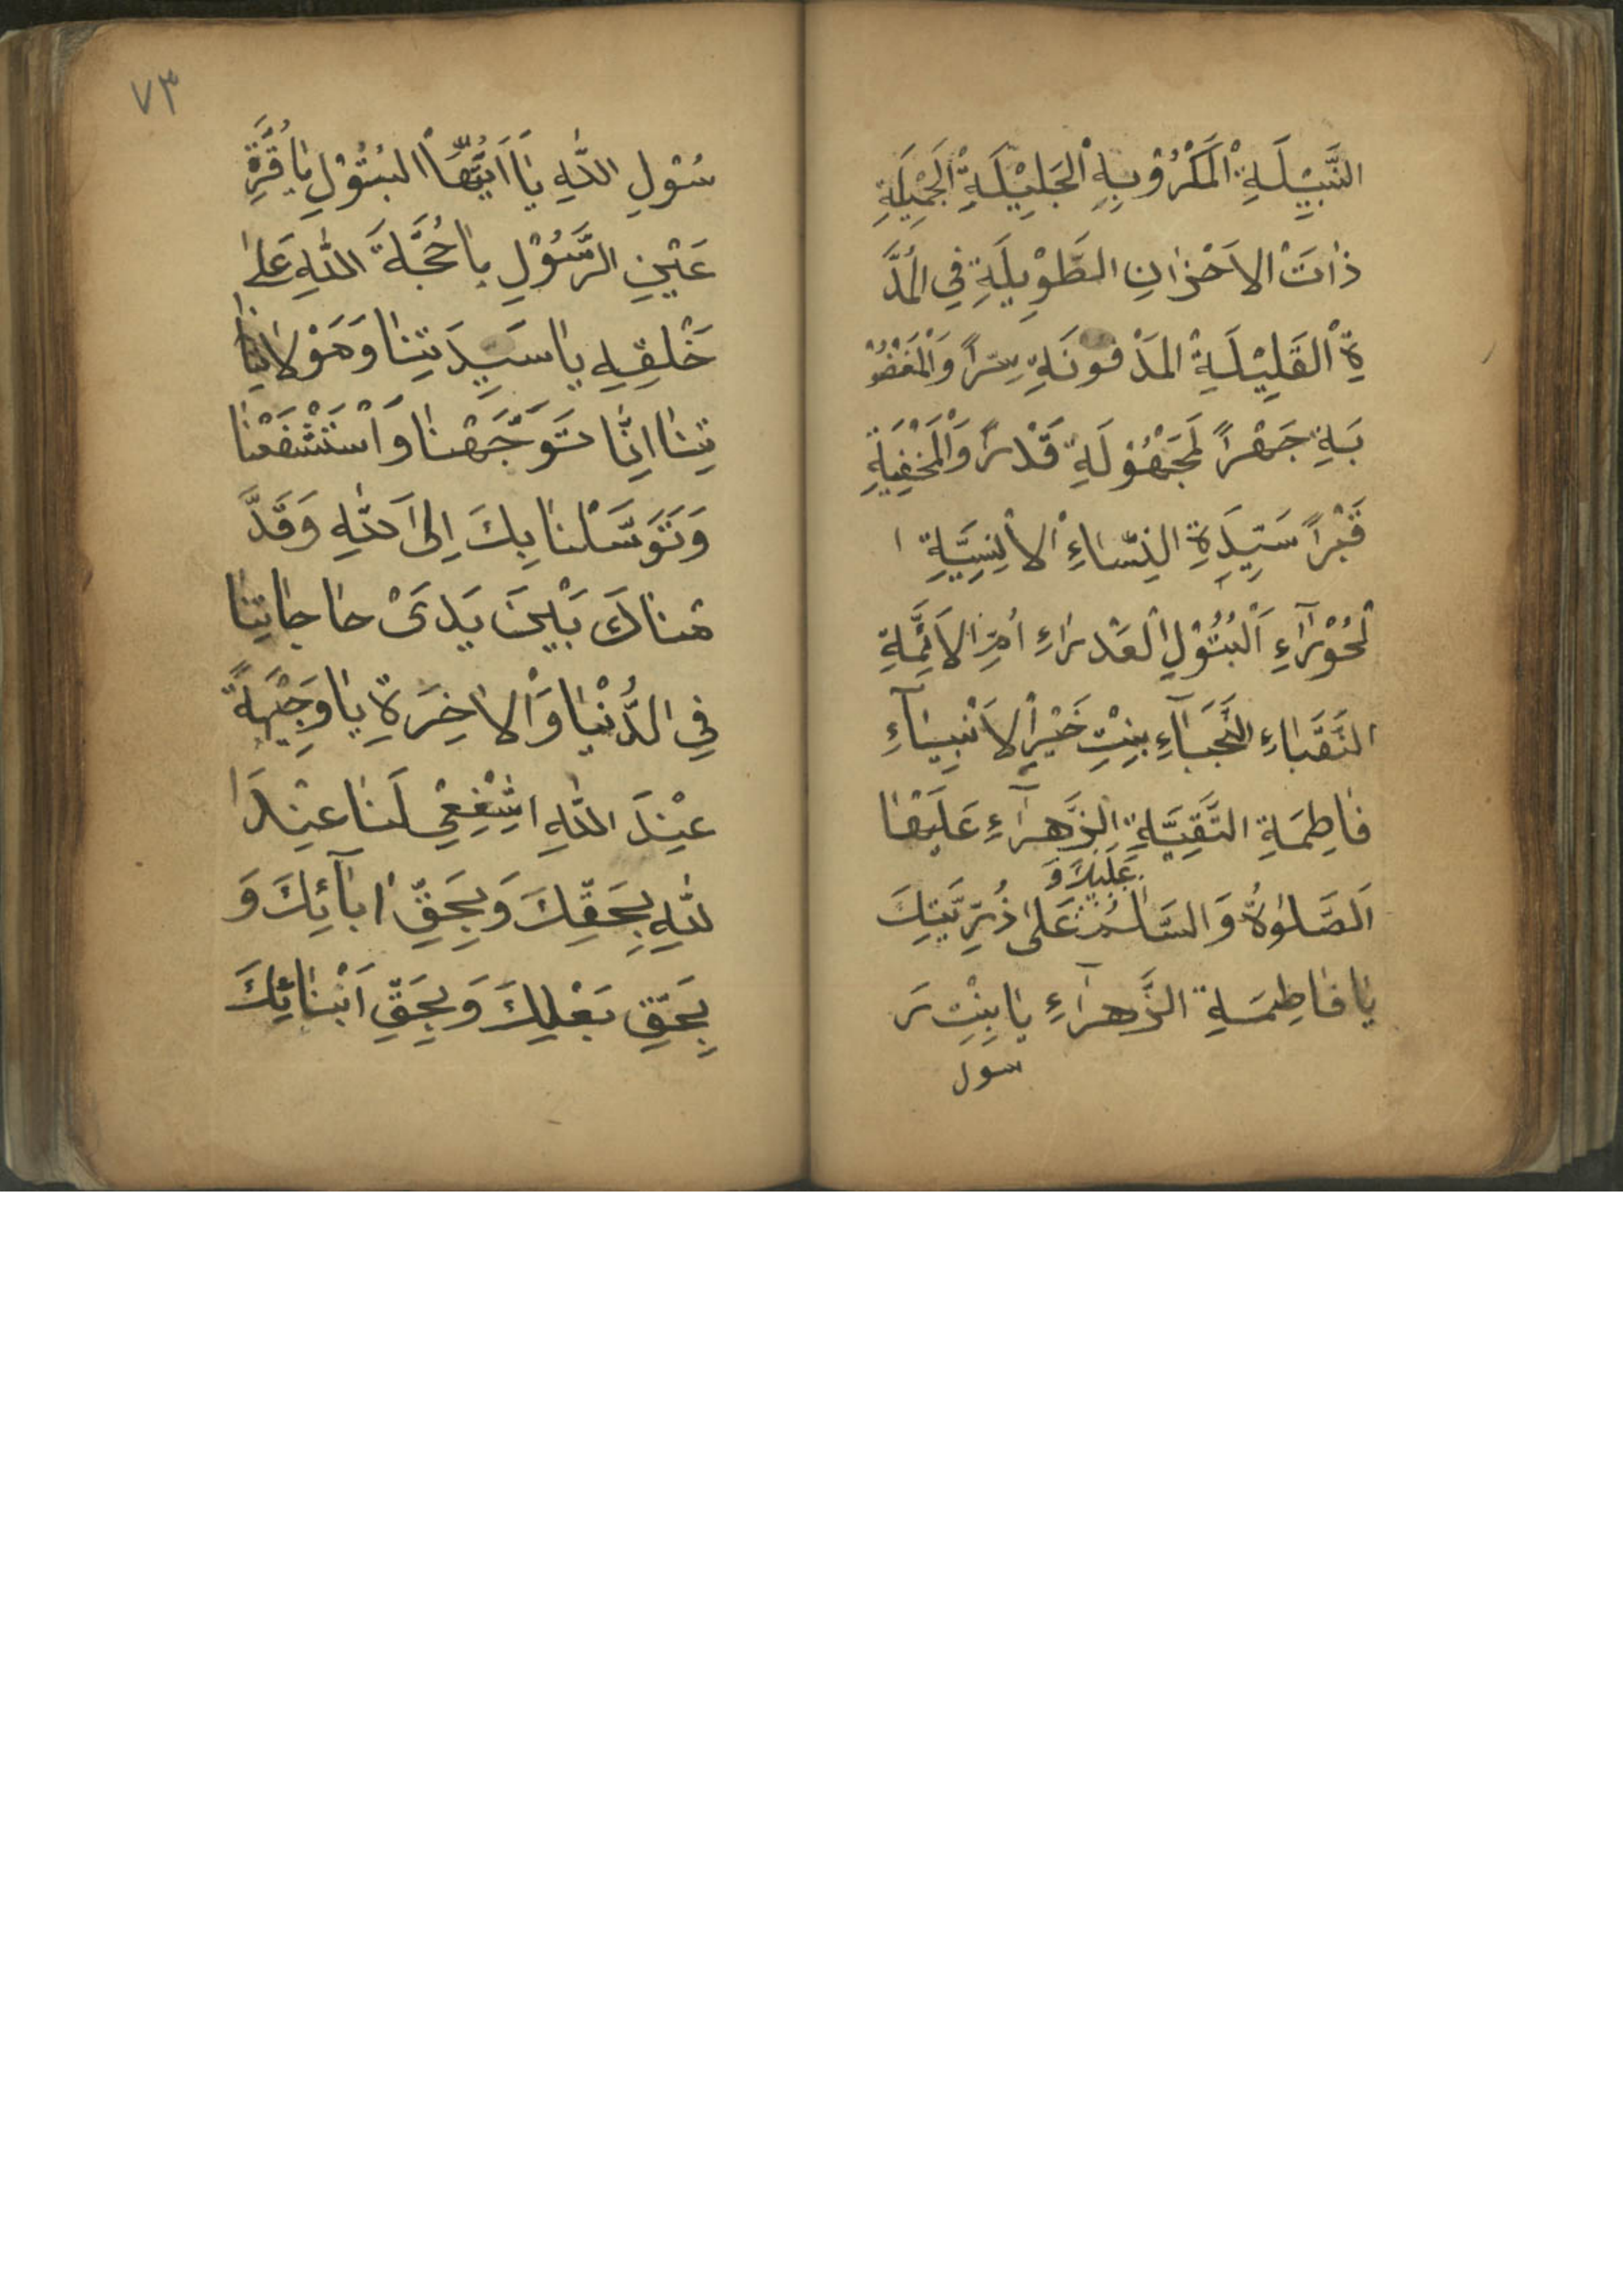 النَّبِيْلَةِ الْمَكْرُوْبِةِ الْجَلِيْلَةِ الْجَمِيْلَةِ
ذٰاتَ الاَحْزٰانِ الطَّوِيْلَةِ فِي الْمُدَّ
ةِ الْقَلِيْلَةِ الْمَدْفُونَةِ سِرّاً وَالْمَغْضُوْ
بَةِ جَهْراً لْمَجْهُوْلَةِ قَدْراً وَالْمَخْفِيَةِ
قَبْراً سَيِّدَةِ النِّسٰاءِ الاِنْسِيَّةِ ا
لْحُوْرٰاءِ اَلْبُتُوْلِ الْعَذْرٰاءِ اُمِّ الاَئِمَّةِ
النُّقَبٰاءِ النُّجَبٰآءِ بِنِتِ خَيْرِ الاَنْبِيٰآءِ
فٰاطِمَةِ التَّقِيَّةِ الزَّهرٰآءِ عَلَيْهٰا
عَلَيْكَ وَ
اَلصَّلوٰةُ وَالسَّلٰمُ عَلىٰ ذُرِّيَّتِكَ
يٰا فٰاطِمَةِ الزَّهرٰآءِ يٰا بِنْتِ رَ
سول
٧٣
سُوْلِ اللّٰهِ يٰا اَيَّتُهَا الْبُتُوْلِ يٰا قُرَّةِ
عَيْنِ الرَّسُوْلِ يٰا حُجَّةَ اللّٰهِ عَلىٰ
خَلْقِهِ يٰا سَيِّدَتِنٰا وَمَوْلاٰتِنٰا
تِنٰا اِنّٰا تَوَجَّهْنٰا وَاسْتَشْفَعْنٰا
وَتَوَسَّلْنٰا بِكَ اِلىَ اللّٰهِ وَقَدَّ
مْنٰاكَ بَيْنَ يَدَىْ حٰاجٰاتِنٰا
فِي الدُّنْيٰا وَالاٰخِرَةِ يٰا وَجِيْهَةً
عِنْدَ اللّٰهِ اشْفِعِيْ لَنٰا عِنْدَ ا
للّٰهِ بِحَقِّكَ وَبِحَقِّ اٰبٰآئِكَ وَ
بِحَقِّ بَعْلِكَ وَبِحَقِّ اَبْنٰائِكَ